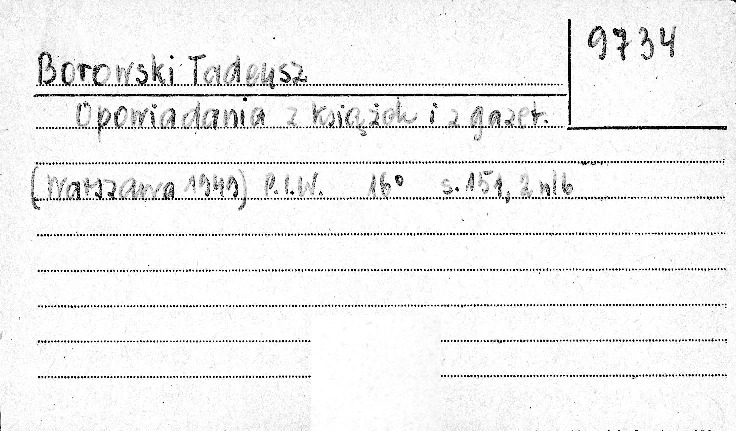 9734
Borowski Tadeusz
Opowiadania z książek i z gazet.
(Warszawa 1949) P.I.W. 16° s. 151, 2 nlb